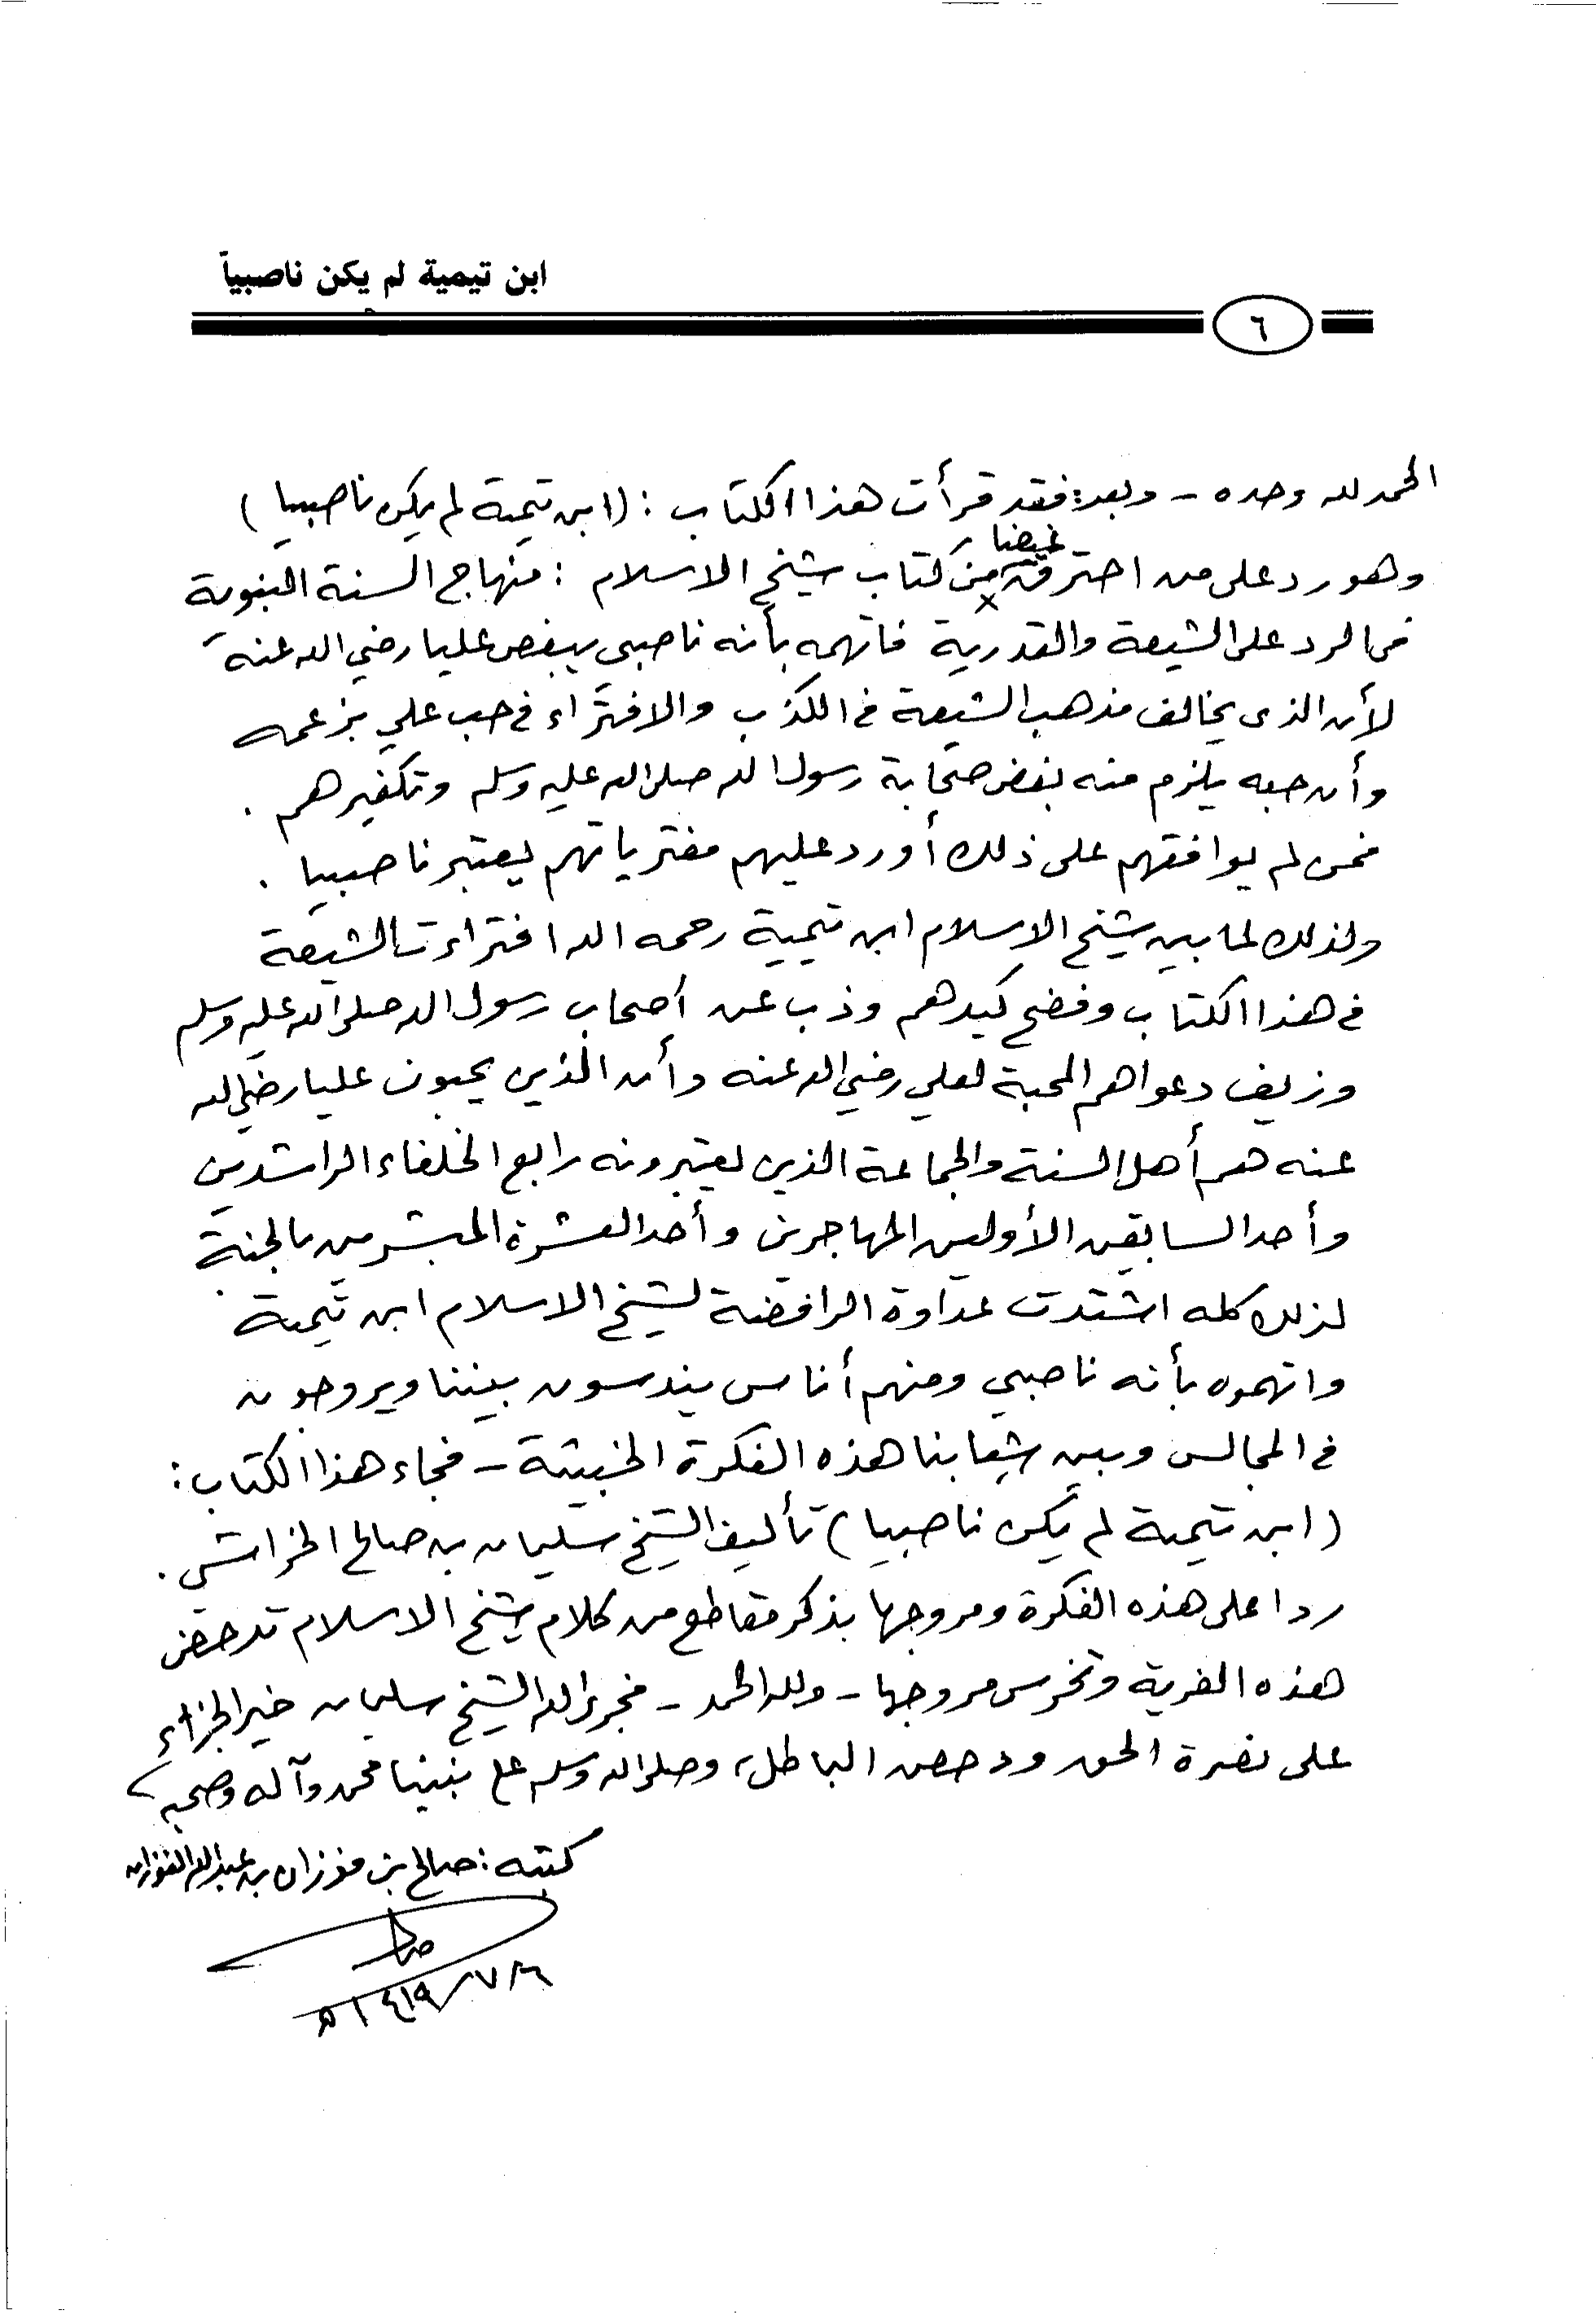 ابن تيمية لم يكن ناصبياً
٦
الحمد لله وحده - وبعد: فقد قرأت هذا الكتاب : (ابن تيمية لم يكن ناصبيا)
وهو رد على من احترق غيضا من كتاب شيخ الاسلام : منهاج السنة النبوية
في الرد على الشيعة والقدرية فاتهمه بأنه ناصبي يبغض عليا رضي الله عنه
لأن الذي يخالف مذهب الشيعة في الكذب والافتراء في حب علي بزعمه
وأن حبه يلزم منه بغض صحابة رسول الله صلى الله عليه وسلم وتكفيرهم .
فمن لم يوافقهم على ذلك أو رد عليهم مفترياتهم يعتبر ناصبيا .
ولذلك لما بين شيخ الإسلام ابن تيمية رحمه الله افتراءت الشيعة
في هذا الكتاب وفضح كيدهم وذب عن أصحاب رسول الله صلى الله عليه وسلم
وزيف دعواهم المحبة لعلي رضي الله عنه وأن الذين يحبون عليا رضي الله
عنه هم أهل السنة والجماعة الذين يعتبرونه رابع الخلفاء الراشدين
وأحد السابقين الأولين المهاجرين وأحد العشرة المبشرين بالجنة
لذلك كله اشتدت عداوة الرافضة لشيخ الاسلام ابن تيمية
واتهموه بأنه ناصبي ومنهم أناس يندسون بيننا ويروجون
في المجالس وبين شبابنا هذه الفكرة الخبيثة - فجاء هذا الكتاب :
(ابن تيمية لم يكن ناصبيا) تأليف الشيخ سليمان بن صالح الخراشي .
ردا على هذه الفكرة ومروجها بذكر مقاطع من كلام شيخ الاسلام تدحض
هذه الفرية وتخرس مروجها - ولله الحمد - فجزى الله الشيخ سليمان خير الجزاء
على نصرة الحق ودحض الباطل، وصلى الله وسلم على نبينا محمد وآله وصحبه
كتبه : صالح بن فوزان بن عبدالله الفوزان
١٤١٩/٧/٦ هـ